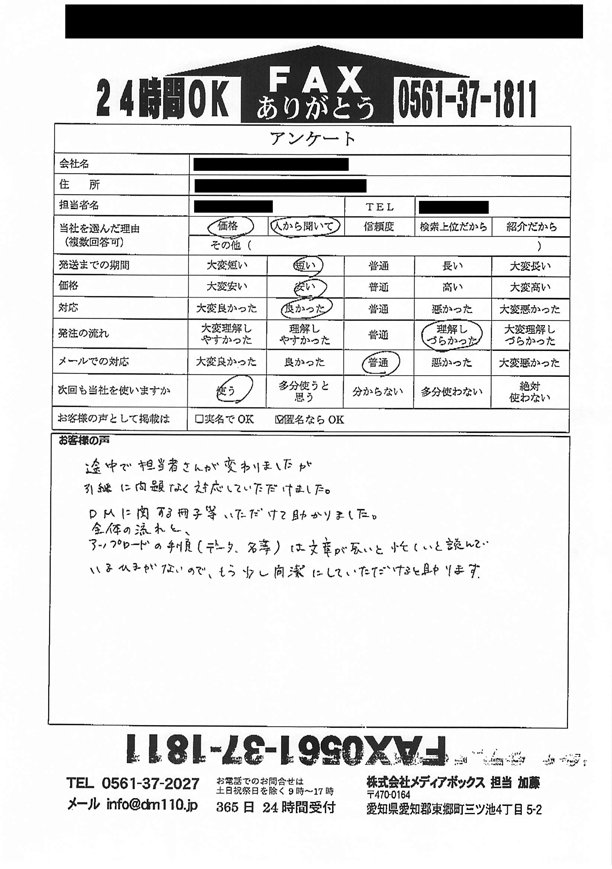 24時間OK
FAX
ありがとう
0561-37-1811
アンケート
会社名
住 所
担当者名 TEL
当社を選んだ理由 価格 人から聞いて 信頼度 検索上位だから 紹介だから
(複数回答可) その他 ( )
発送までの期間 大変短い 短い 普通 長い 大変長い
価格 大変安い 安い 普通 高い 大変高い
対応 大変良かった 良かった 普通 悪かった 大変悪かった
発注の流れ 大変理解しやすかった 理解しやすかった 普通 理解しづらかった 大変理解しづらかった
メールでの対応 大変良かった 良かった 普通 悪かった 大変悪かった
次回も当社を使いますか 使う 多分使うと思う 分からない 多分使わない 絶対使わない
お客様の声として掲載は □実名でOK ☑匿名ならOK
お客様の声
途中で担当者さんが変わりましたが
引継に問題なく対応していただけました。
DMに関する冊子等いただけて助かりました。
全体の流れと、
アップロードの手順(データ、名簿)は文章が長いと忙しいと読んで
いるひまがないので、もう少し簡潔にしていただけると助ります。
FAX0561-37-1811
TEL 0561-37-2027
メール info@dm110.jp
お電話でのお問合せは
土日祝祭日を除く9時〜17時
365日24時間受付
株式会社メディアボックス 担当 加藤
〒470-0164
愛知県愛知郡東郷町三ツ池4丁目5-2